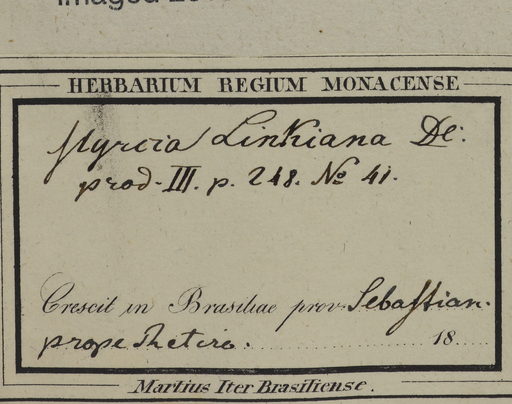 Imaged
HERBARIUM REGIUM MONACENSE
Myrcia Linkiana DC:
prod. III. p. 248. No 41.
Crescit in Brasiliae prov. Sebastian.
prope 18
Martius Iter Brasiliense.